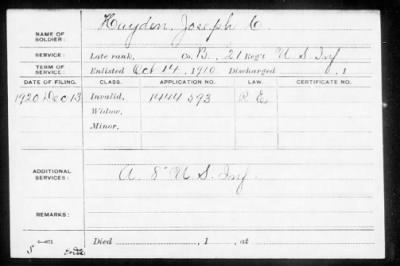 NAME OF SOLDIER: Huyden, Joseph C.
SERVICE: Late rank, Co. B, 21 Reg't U S Inf
TERM OF SERVICE: Enlisted Oct 14, 1910 Discharged , 1
DATE OF FILING. CLASS. APPLICATION NO. LAW. CERTIFICATE NO.
1920 Dec 13 Invalid, 1444 593 R. E.
Widow,
Minor,
ADDITIONAL SERVICES: A. 8" U S. Inf.
REMARKS:
Died , 1 , at